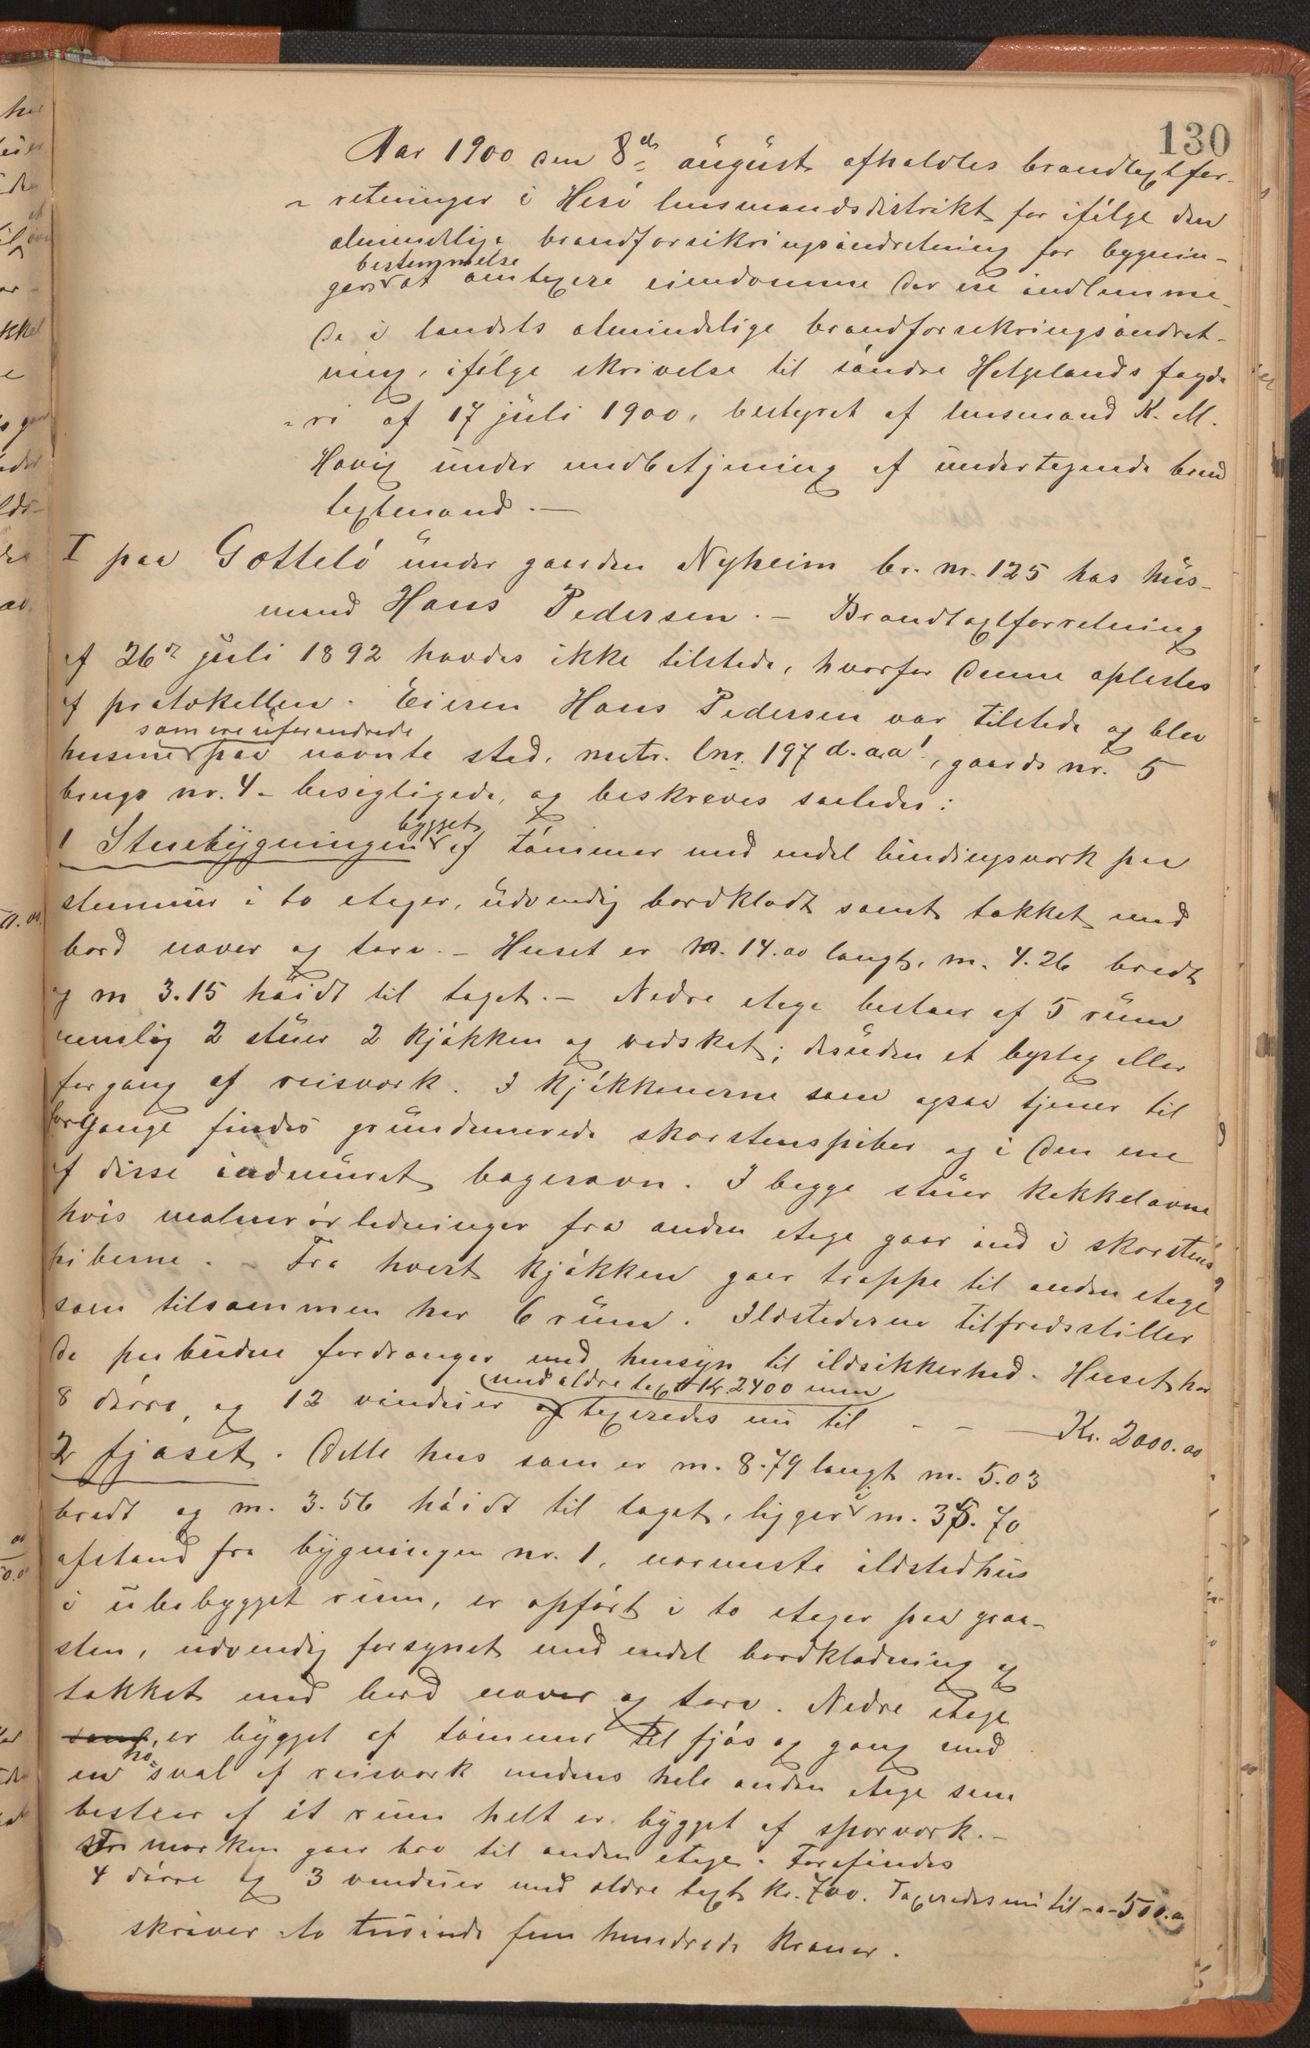 130
Aar 1900 den 8de august afholdtes brandtaxtfor-
retninger i Herø lensmandsdistrikt for ifølge den
almindelige brandforsikringsindretning for bygnin-
bestemmelse
gers at omtaxere eiendomme der ere indlemme-
de i landets almindelige brandforsikringsindret-
ning, ifølge skrivelse til søndre Helgelands fogde-
ri af 17 juli 1900, bestyret af lensmand K. M.
Havig under medbetjening af undertegnede brand
taxtmænd. —
I paa Gotteló under gaarden Nyheim br. nr. 125 hos hus-
mand Hans Pedersen. – Brandtaxtforretning
af 26de juli 1892 havdes ikke tilstede, hvorfor denne oplestes
af protokollen. Eieren Hans Pedersen var tilstede og blev
som ere uforandrede
husene paa nævnte sted, matr. lnr. 197 d. a,a1, gaards nr. 5
brugs nr. 4 – besigtigede, og beskreves saaledes:
bygget
1 Stuebygningen af tømmer med endel bindingsverk paa
stenmur i to etager, udvendig bordklædt samt tækket med
bord næver og torv. – Huset er m. 14.00 langt, m. 4.26 bredt
og m 3.15 høidt til taget. – Nedre etage bestaar af 5 rum
nemlig 2 stuer 2 kjøkken og vedskot; desuden et byslag eller
forgang af reisverk. I kjøkkenerne som ogsaa tjener til
forgange findes grundmurede skorstenspiber og i den ene
af disse indmuret bagerovn. I begge stuer kakkelovne
hvis malmrørledninger fra anden etage gaar ind i skorstens
piberne. – Fra hvert kjøkken gaar trappe til anden etage
som tilsammen har 6 rum. Ildstederne tilfredsstiller
de paabudne fordringer med hensyn til ildsikkerhed. Huset har
med ældre taxt Kr 2400 men
8 dørre, og 12 vinduer og taxeredes nu til – – — Kr. 2000.00
2 fjøset. Dette hus som er m. 8.79 langt m. 5.03
bredt og m. 3.56 høidt til taget, ligger i m. 35.70
afstand fra bygningen nr. 1, nærmeste ildstedhus
i ubebygget rum, er opført i to etager paa graa-
sten, udvendig forsynet med endel bordklædning og
tækket med bord næver og torv. Nedre etage
samt, er bygget af tømmer til fjøs og gang med
hø-
en sval af reisverk medens hele anden etage som
bestaar af et rum helt er bygget af sporverk. –
Fra marken gaar bro til anden etage. Forefindes
4 dørre og 3 vinduer med ældre taxt kr. 700. Taxeredes nu til – „ – 500.00
skriver to tusinde fem hundrede kroner.